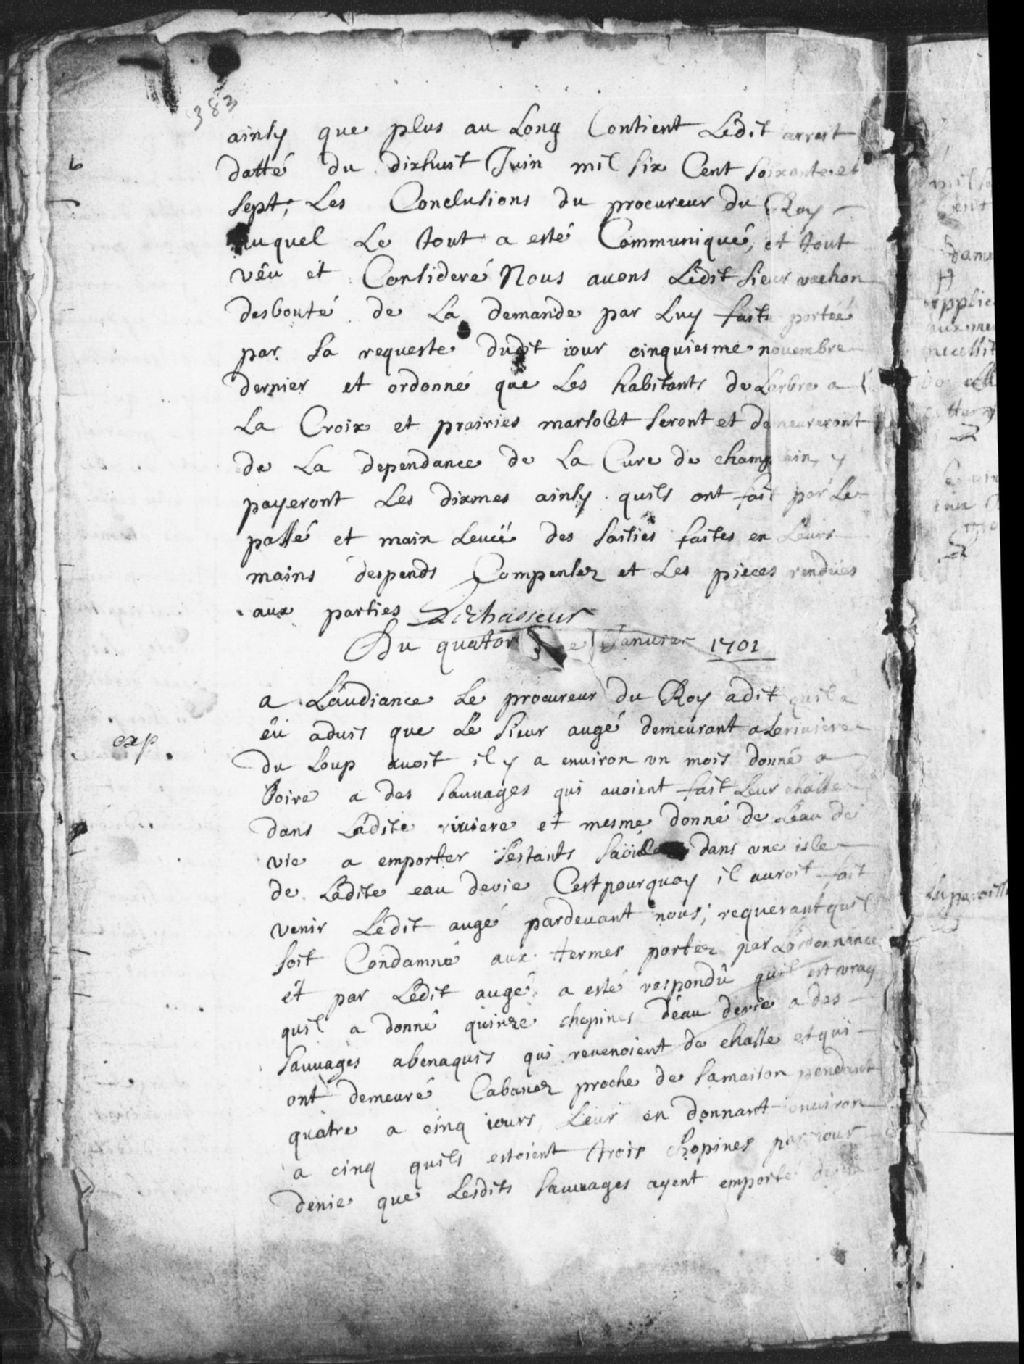 383
ainsy que plus au Long Contient Ledit arrest
datté du dixhuit Juin mil six Cent soixante et
sept, Les Conclusions du procureur du Roy
auquel Le tout a esté Communiqué, et tout
vêu et Consideré Nous avons Ledit sieur vachon
debouté de La demande par Luy faite portée
par sa requeste dudit jour cinquiesme novembre
dernier et ordonné que Les habitants de Larbre a
La Croix et prairies marsolet seront et demeureront
de La dependance de La Cure de champlain, y
payeront Les dixmes ainsy quils ont fait par Le
passé et main Levée des saisies faites en Leurs
mains despends Compensez et Les pieces rendües
aux parties Lechasseur
Du quatorze Janvier 1701
a Laudiance Le procureur du Roy a dit quil a
exp.
êu aduis que Le sieur augé demeurant a La riviere
du Loup avoit il y a environ un mois donné a
boire a des sauvages qui avoient fait Leur chasse
dans Ladite riviere et mesme donné de Leau de
vie a emporter sestants dans une isle
de Ladite eau devie Cest pourquoy il auroit fait
venir Ledit augé pardevant nous, requerant quil
soit Condamné aux termes portez par Lordonnance
et par Ledit augé a esté respondu quil est vray
quil a donné quinze chopines deau devie a des
sauvages abenaquis qui revenoient de chasse et qui
ont demeuré Cabanez proche de sa maison pendant
quatre a cinq jours Leur en donnant environ
a cinq quils estoient trois chopines par jour
denie que Lesdits sauvages ayent emporté